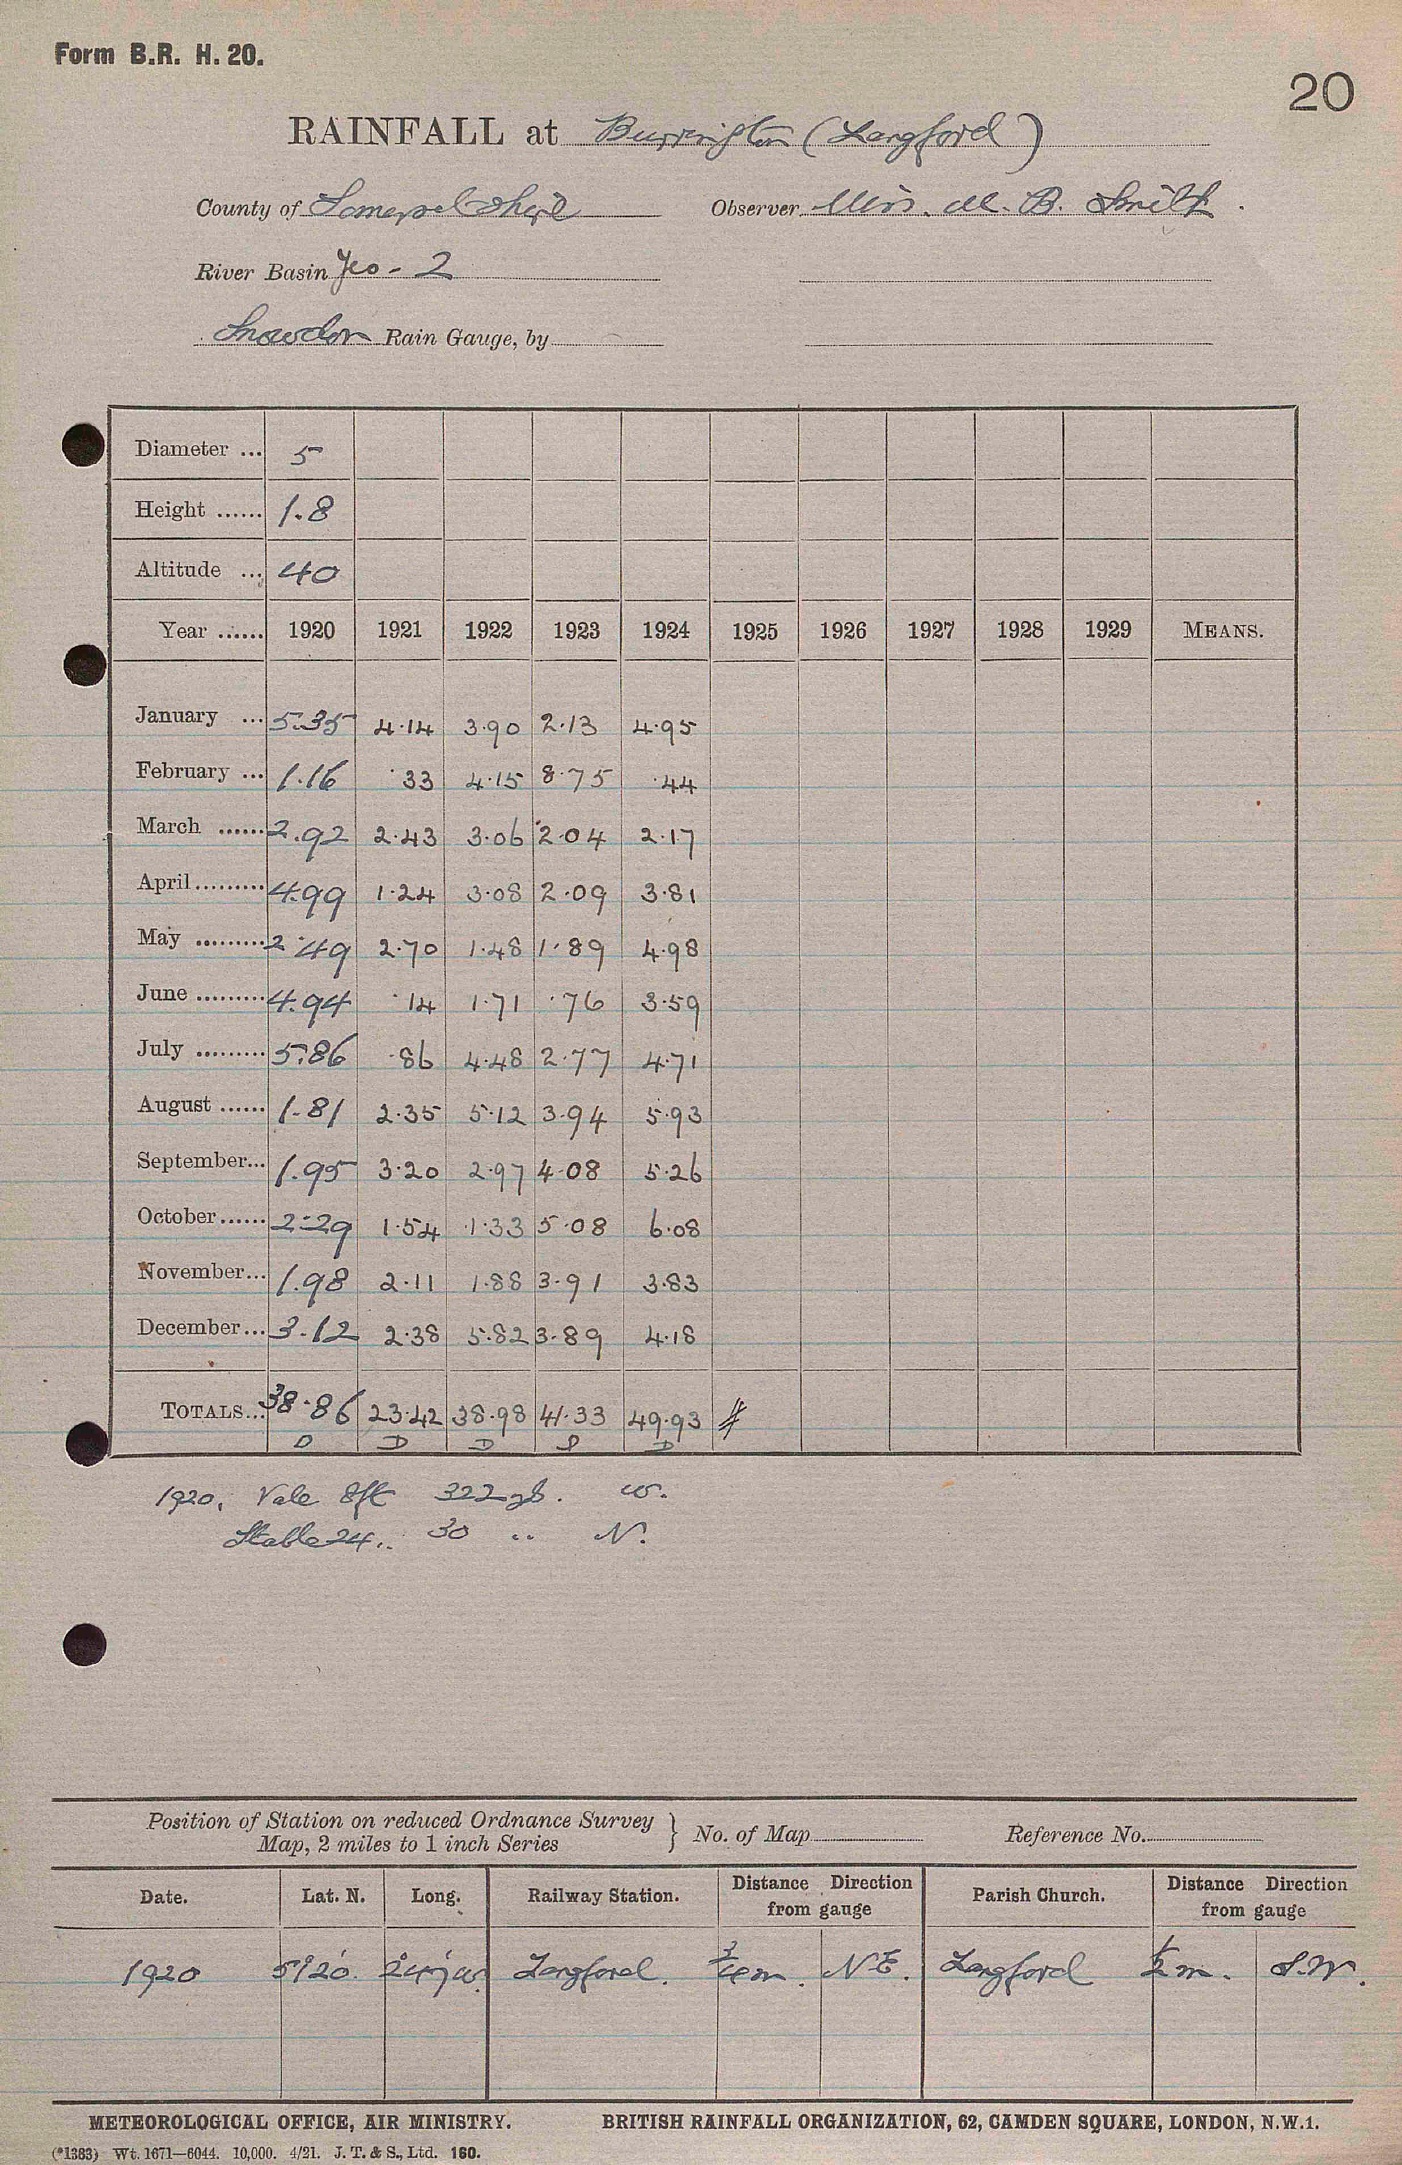 Form B.R. H. 20.
20
RAINFALL at Burrington (Langford)
County of Somersetshire Observer Miss. M. B. Smith.
River Basin Yeo - 2
Snowdon Rain Gauge, by
Diameter ... 5
Height ...... 1.8
Altitude ... 40
Year ...... 1920 1921 1922 1923 1924 1925 1926 1927 1928 1929 MEANS.
January ... 5.35 4.14 3.90 2.13 4.95
February ... 1.16 .33 4.15 8.75 .44
March ...... 2.92 2.43 3.06 2.04 2.17
April ......... 4.99 1.24 3.08 2.09 3.81
May ......... 2.49 2.70 1.48 1.89 4.98
June ......... 4.94 .14 1.71 .76 3.59
July ......... 5.86 .86 4.48 2.77 4.71
August ...... 1.81 2.35 5.12 3.94 5.93
September... 1.95 3.20 2.97 4.08 5.26
October ...... 2.29 1.54 1.33 5.08 6.08
November... 1.98 2.11 1.88 3.91 3.83
December ... 3.12 2.38 5.82 3.89 4.18
TOTALS... 38.86 23.42 38.98 41.33 49.93
D D D D
1920. 8ft w.
Stable 24 .. 30 .. N.
Position of Station on reduced Ordnance Survey
Map, 2 miles to 1 inch Series } No. of Map Reference No.
Date. Lat. N. Long. Railway Station. Distance Direction from gauge Parish Church. Distance Direction from gauge
1920 51°20' 2°47'w. Langford. 3/4 m. N.E. Langford 1/2 m. S.W.
METEOROLOGICAL OFFICE, AIR MINISTRY. BRITISH RAINFALL ORGANIZATION, 62, CAMDEN SQUARE, LONDON, N.W.1.
(*1383) Wt. 1671—6044. 10,000. 4/21. J. T. & S., Ltd. 160.